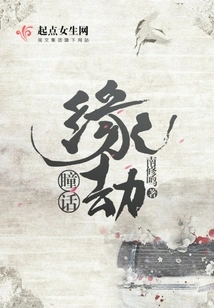 起点女生网
阅文集团旗下网站
缘劫
瞳话
南修鸣 著